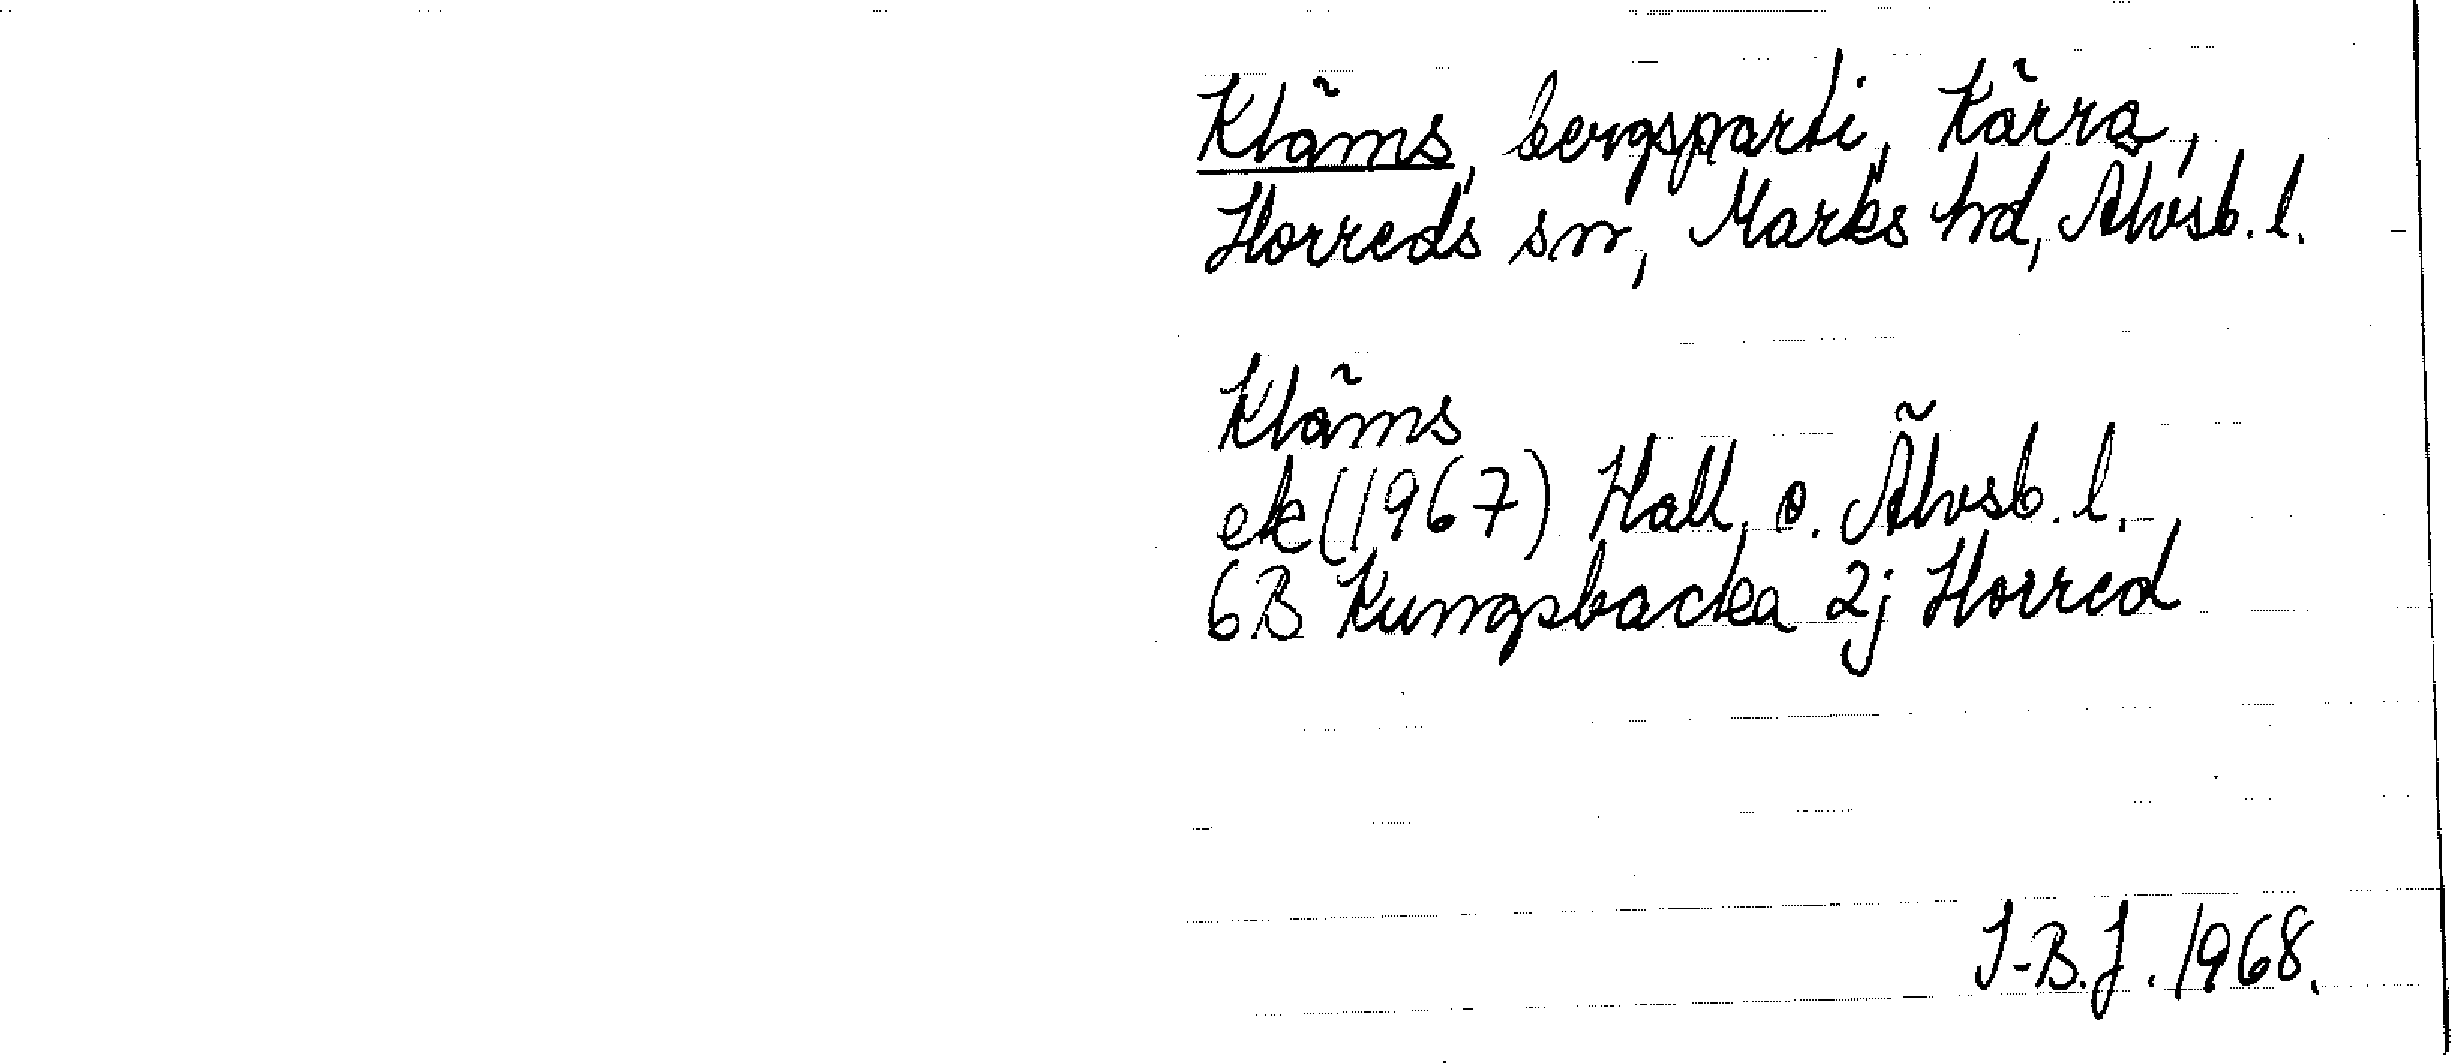 Kläms, bergsparti, Kärra,
Horreds sn, Marks hd, Älvsb. l.
Kläms
ek (1967) Hall. o. Älvsb. l.
6B Kungsbacka 2j Horred
I-B.J. 1968.